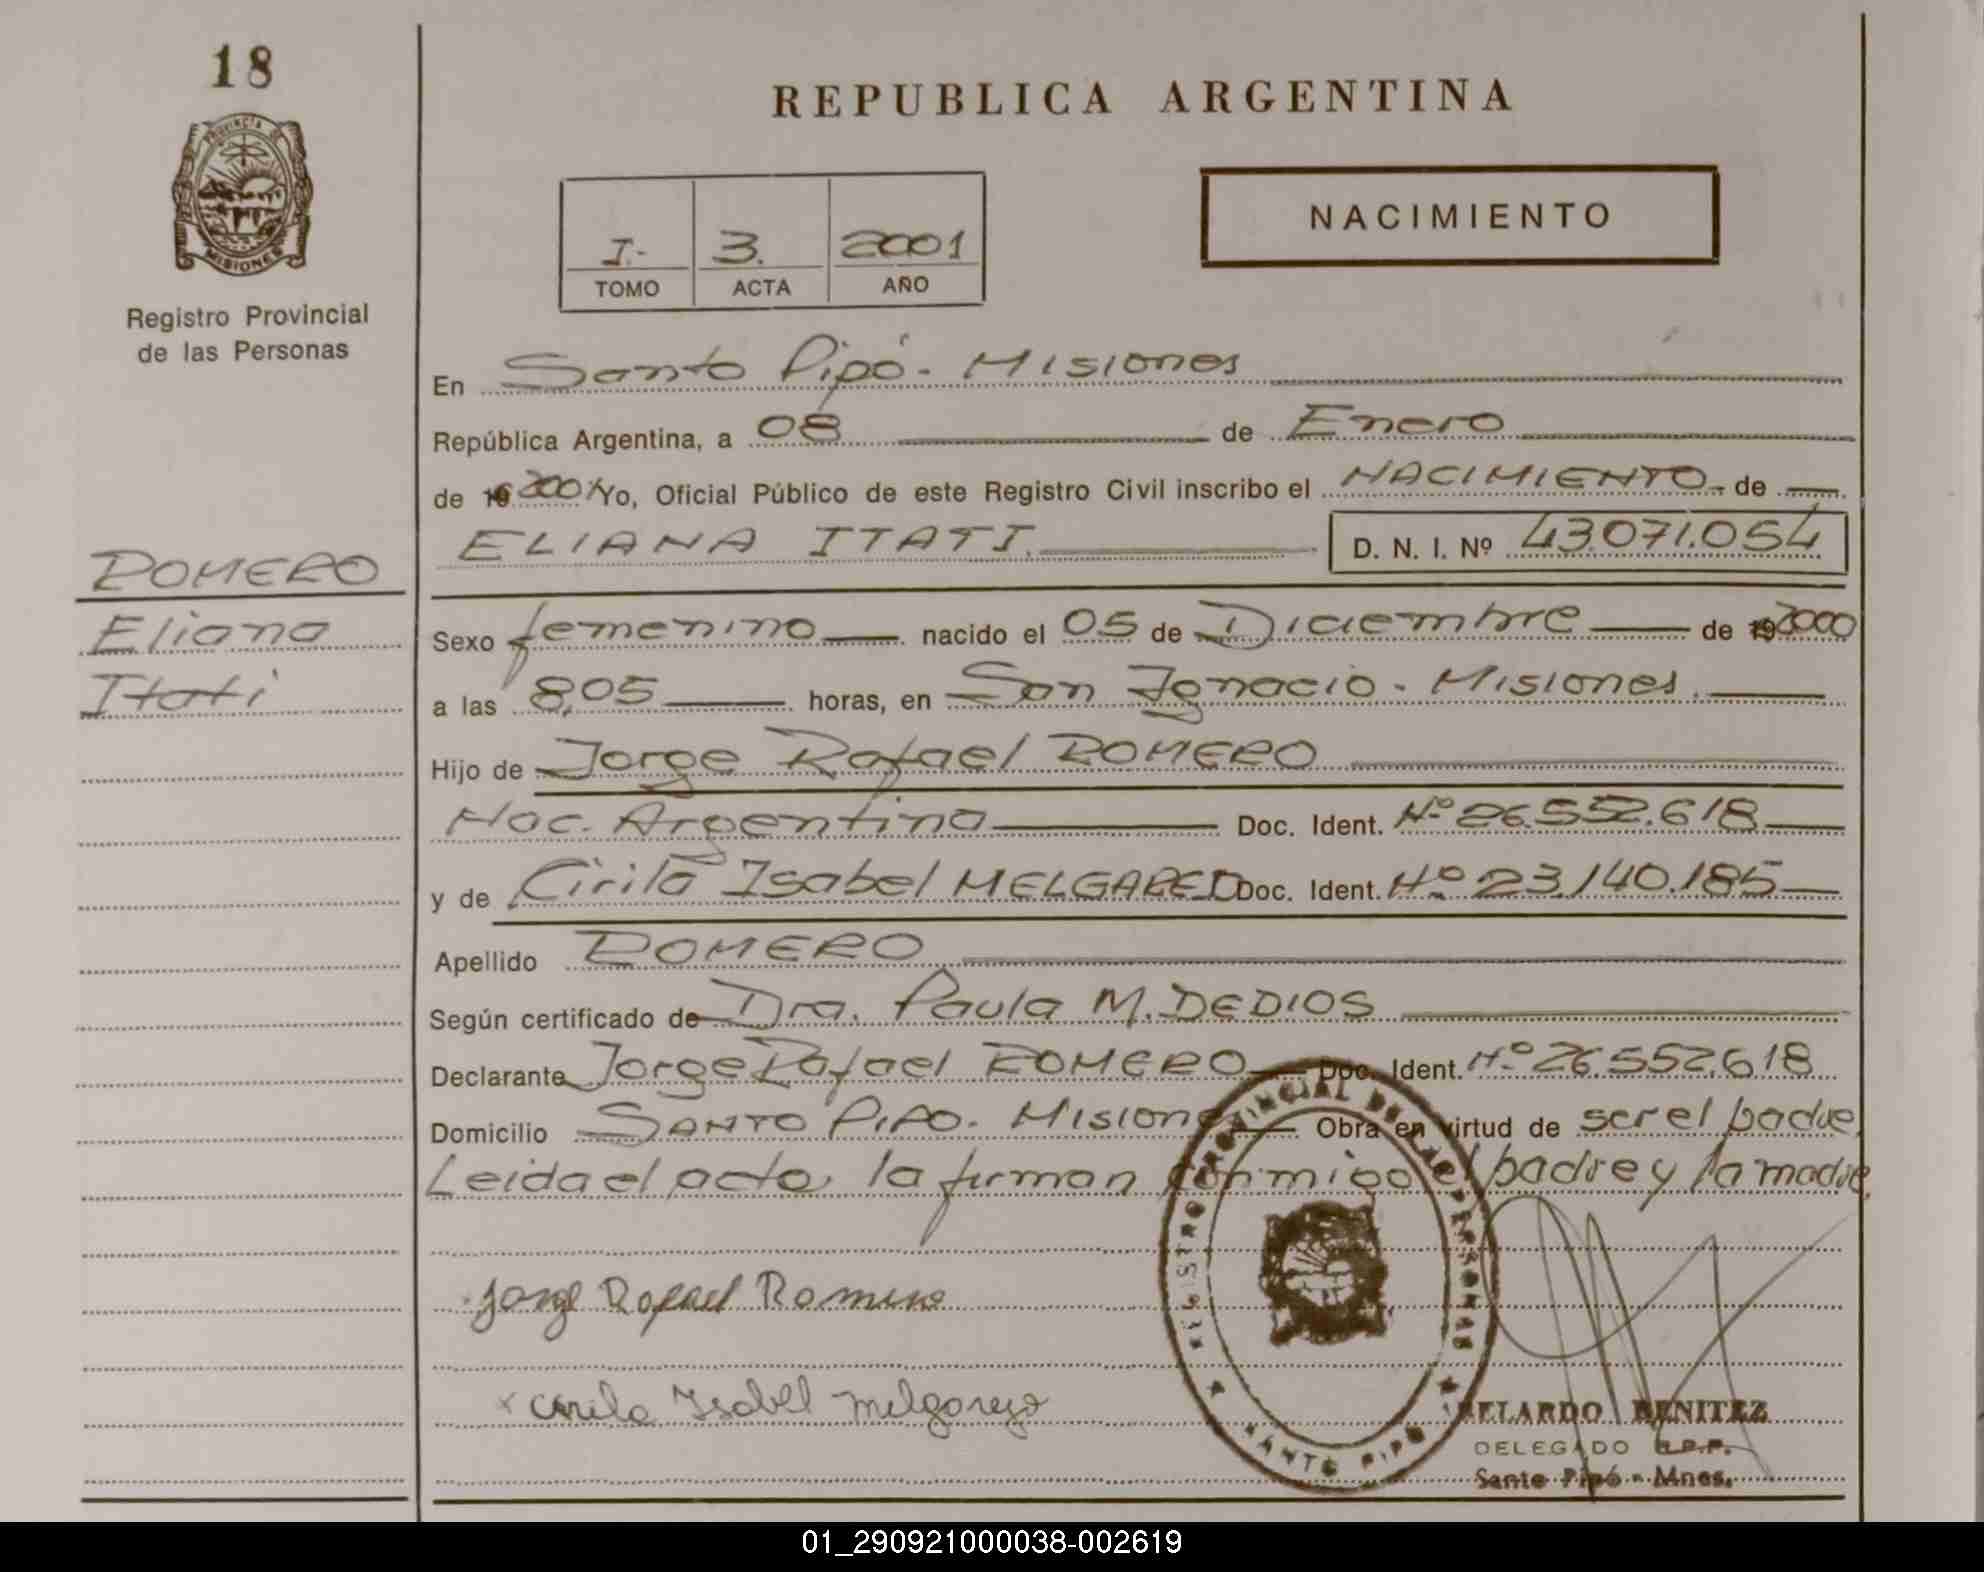 18
REPUBLICA ARGENTINA
PROVINCIA DE
MISIONES
Registro Provincial
de las Personas
NACIMIENTO
I.- 3. 2001
TOMO ACTA AÑO
En Santo Pipó - Misiones
República Argentina, a 08 de Enero
de 19 2001 Yo, Oficial Público de este Registro Civil inscribo el NACIMIENTO - de
ELIANA ITATI. D. N. I. Nº 43.071.054
ROMERO
Eliana
Itati
Sexo femenino nacido el 05 de Diciembre de 19 2000
a las 8,05 horas, en San Ignacio - Misiones.
Hijo de Jorge Rafael ROMERO
Nac. Argentina Doc. Ident. Nº 26.552.618
y de Cirila Isabel MELGAREJO Doc. Ident. Nº 23.140.185
Apellido ROMERO
Según certificado de Dra. Paula M. DEDIOS
Declarante Jorge Rafael ROMERO Doc. Ident. Nº 26.552.618
Domicilio SANTO PIPO. Misiones Obra en virtud de ser el padre.
Leida el acta, la firman conmigo el padre y la madre.
Jorge Rafael Romero
x Cirila Isabel Melgarejo
REGISTRO PROVINCIAL DE LAS PERSONAS
SANTO PIPO
ABELARDO BENITEZ
DELEGADO R.P.P.
Santo Pipó - Mnes.
01_290921000038-002619